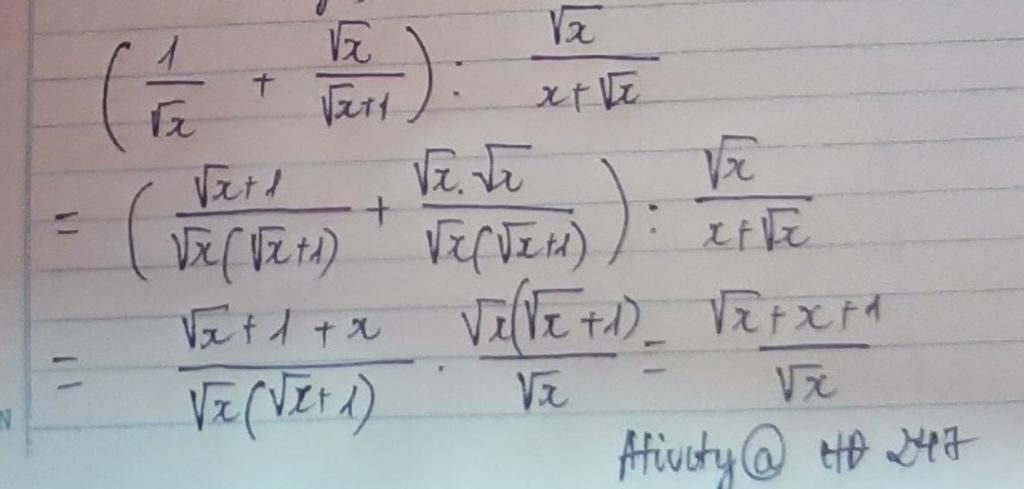 (1/√x + √x/(√x+1)) : √x/(x+√x)
= ((√x+1)/(√x(√x+1)) + (√x.√x)/(√x(√x+1))) : √x/(x+√x)
= (√x+1+x)/(√x(√x+1)) . (√x(√x+1))/√x = (√x+x+1)/√x
@ 247